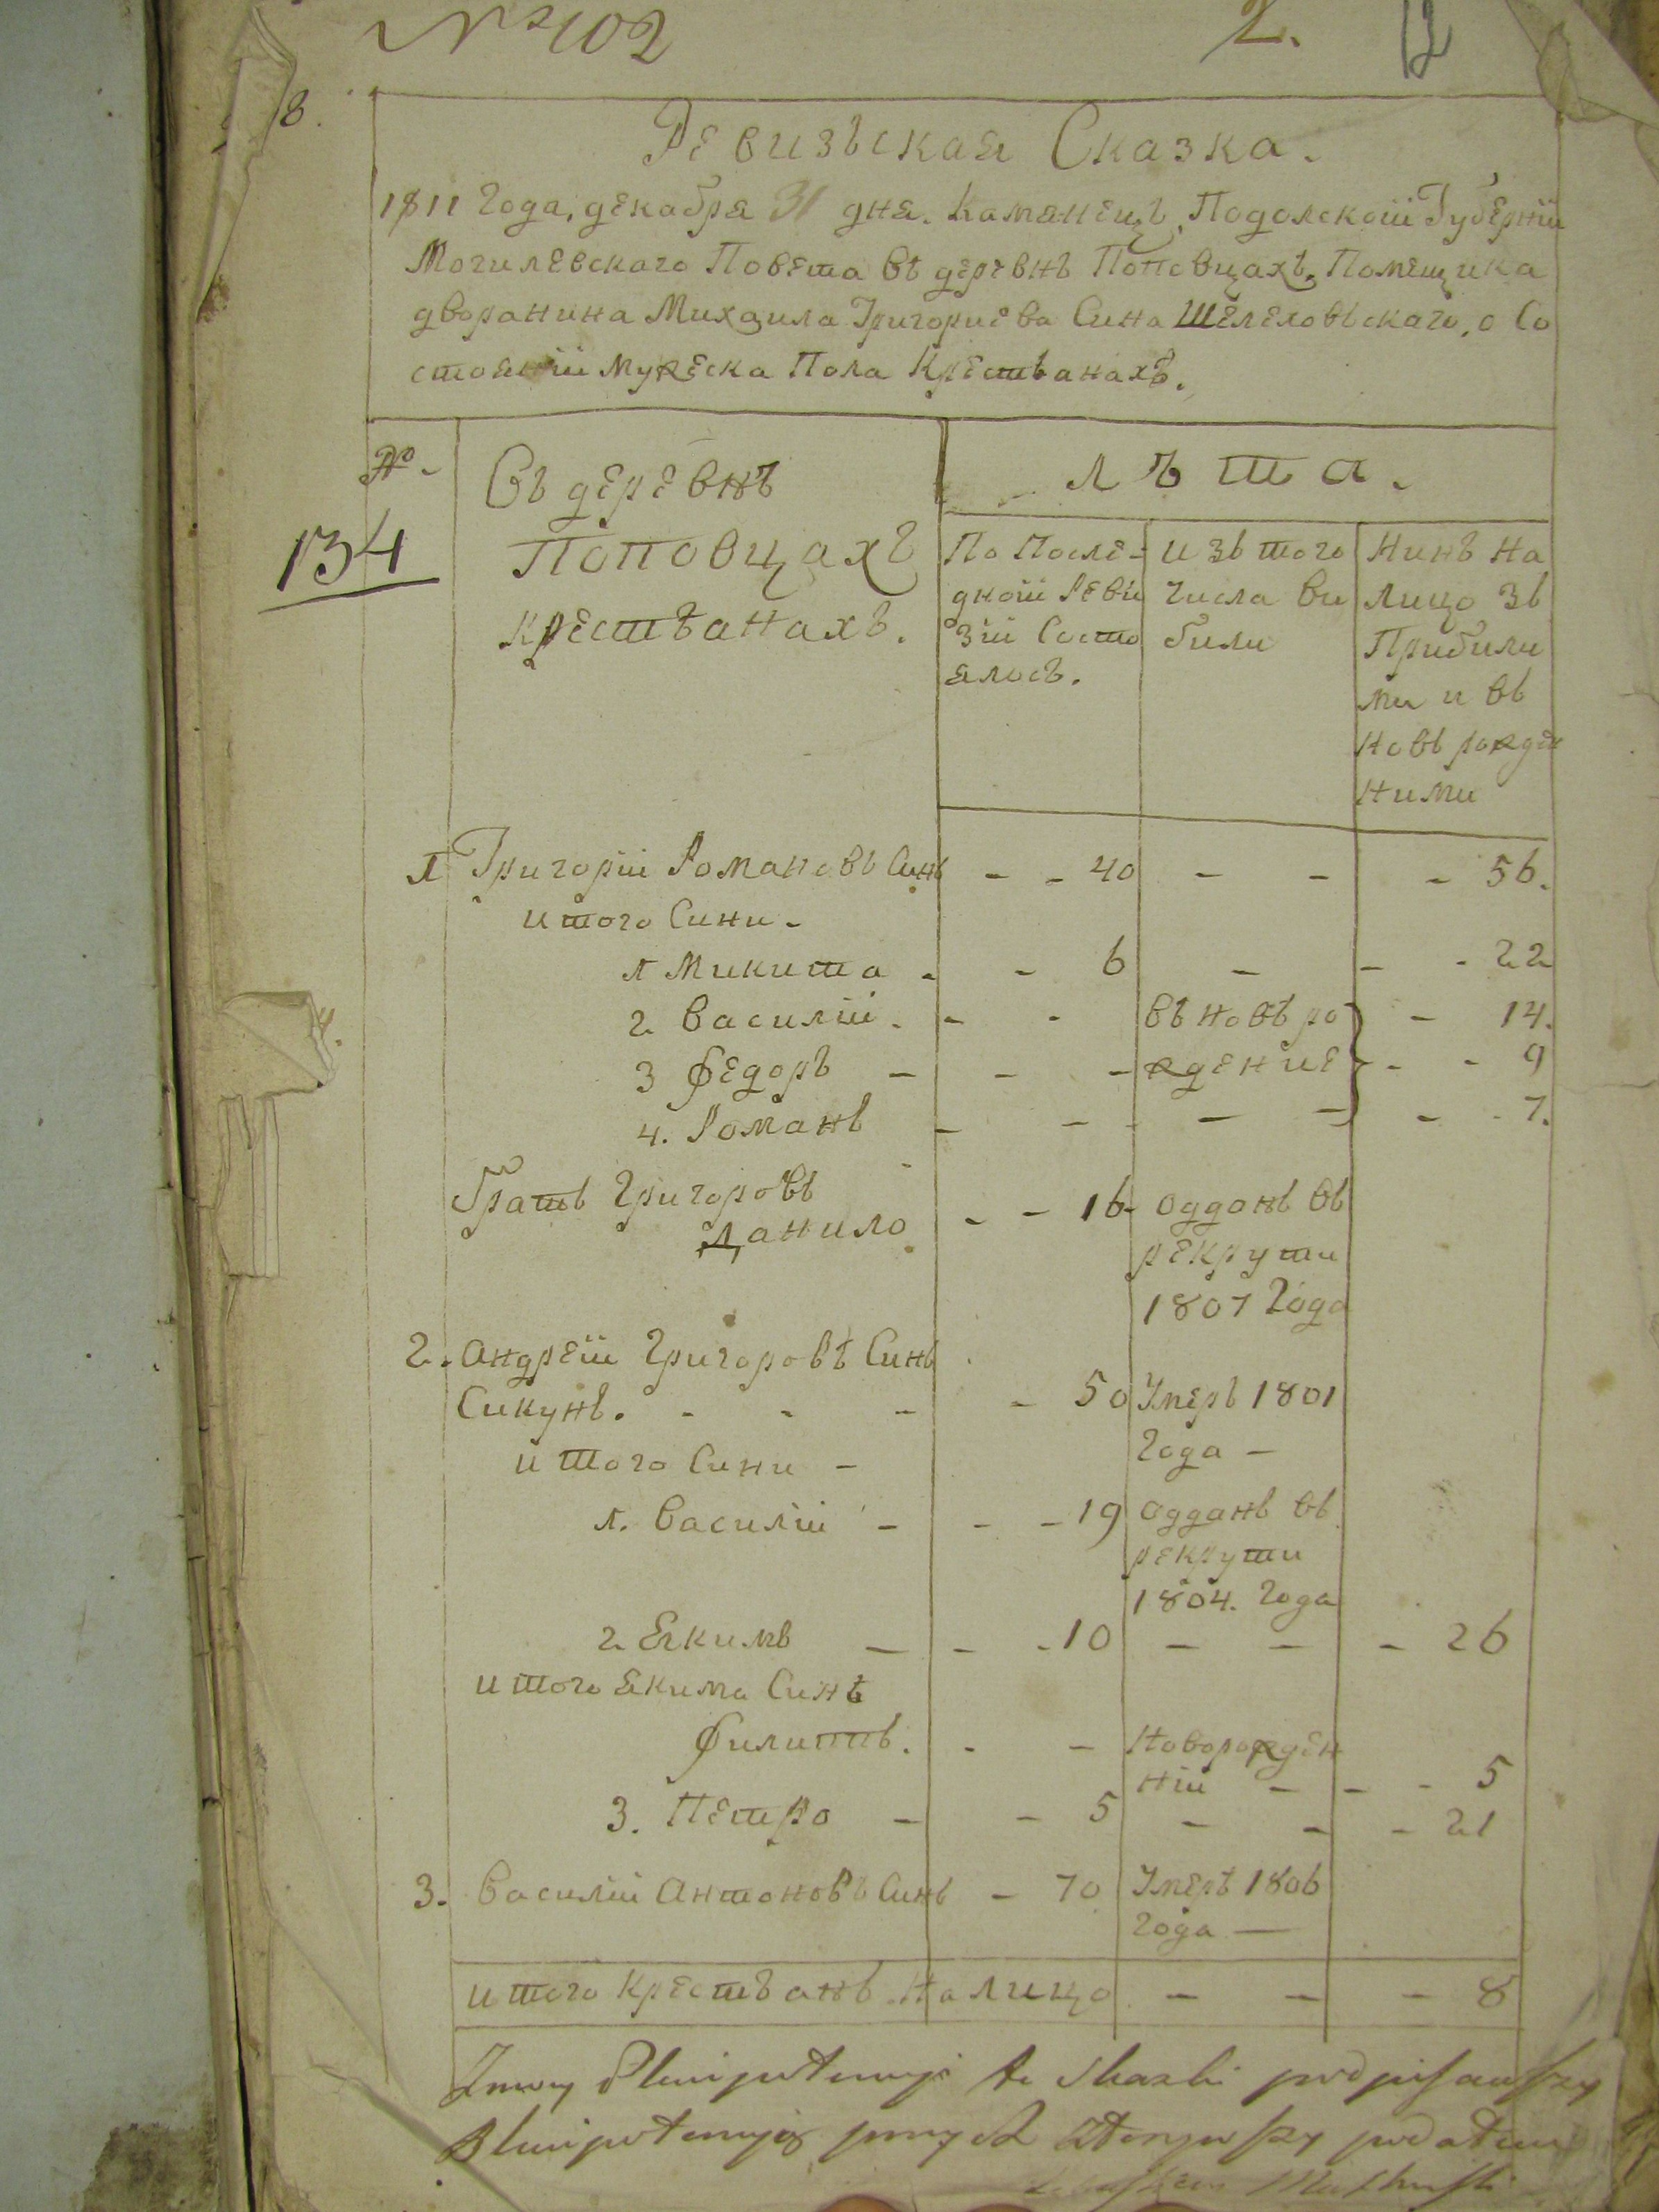 2.
12
8.
Ревизъская Сказка.
1811 Года, декабря 31 дня. Каменецъ Подолской Губернїи
Могилевскаго Повета въ деревнѣ Поповцахъ, Помещика
дворанина Михаила Григориева Сина Шелеховьскаго, о Со
стоянїи мужеска Пола Крестъанахъ.
№.
134
Въ деревнѣ
Поповцахъ
крестъанахъ.
лѣта.
По После-
дной Реви
зїи Состо
ялось.
изъ того
Числа ви
били
Нинѣ на
лицо зъ
Прибили
ми и въ
новь рожден
ними
1 Григорїй Романовъ Синъ - - 40 - - - 56.
итого Сини -
1 Микита - - 6 - - - 22
2 Василїй - - - въ новь ро - 14.
3 Федоръ - - - ждение - - 9
4. Романъ - - - - - - 7.
Братъ Григоровъ
Данило - - 16 - одданъ въ
рекрути
1807 Года
2. Андрей Григоровъ Синъ
Сикунъ. - - - - 50 Умеръ 1801
Года -
итого Сини -
1. Василїй - - - 19 одданъ въ
рекрути
1804. Года
2 Екимъ - - - 10 - - - 26
итого Екима Синъ
Филиппъ. - - Новорожден
нїй - - - 5
3. Петро - - 5 - - - 21
3. Василїй Антоновъ Синъ - 70 Умеръ 1806
Года -
итого Крестъанъ налицо - - - 8
Zmocy Plenipotencyi te skazki podpisawszy
Plenipotencyią przy